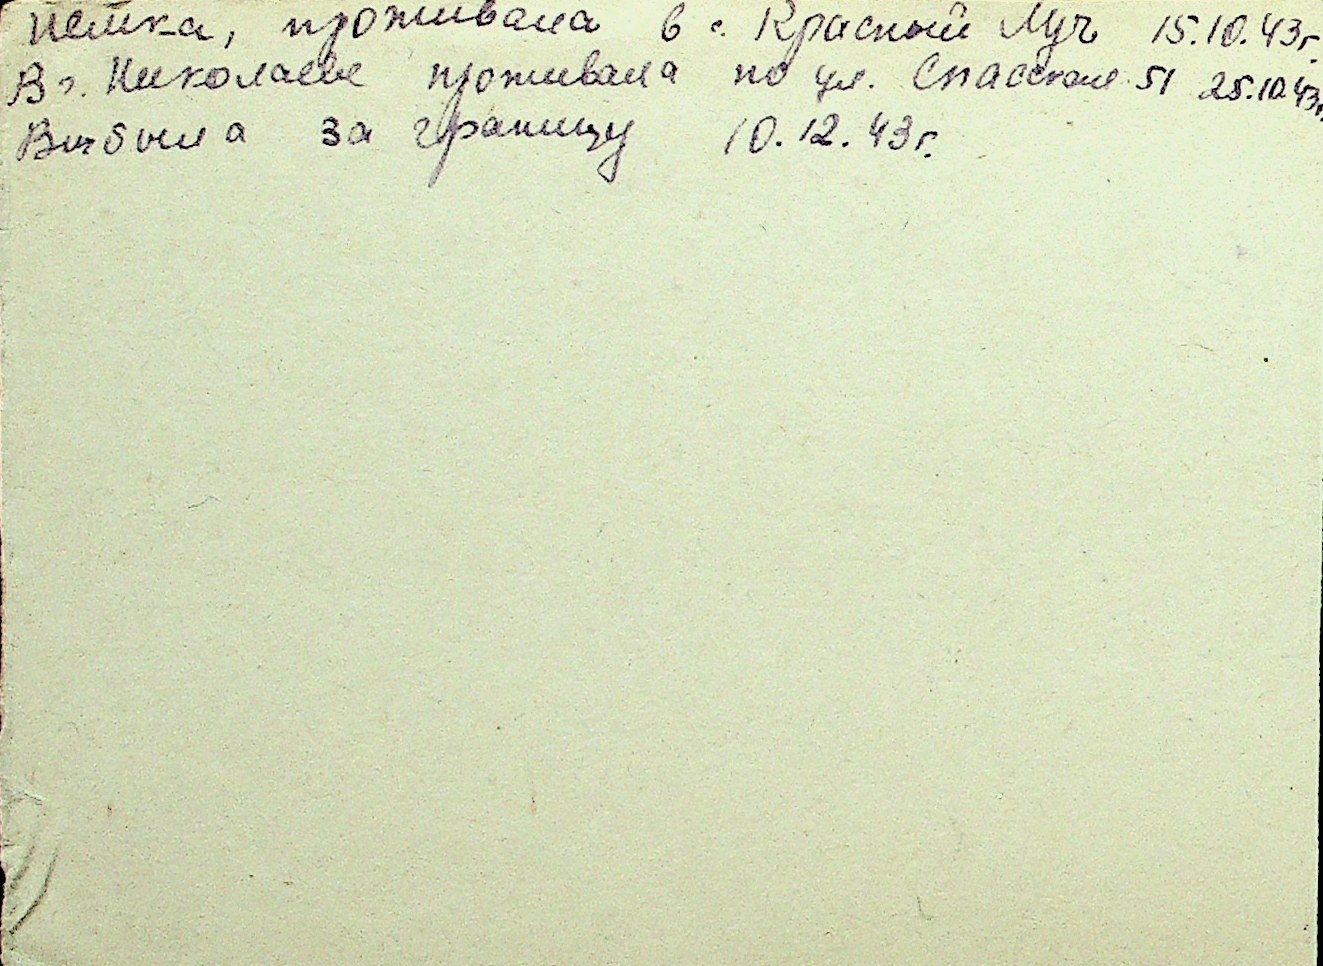 немка, проживала в с. Красный Луч 15.10.43г.
В г. Николаеве проживала по ул. Спасской 51 25.10.43г.
Выбыла за границу 10.12.43г.